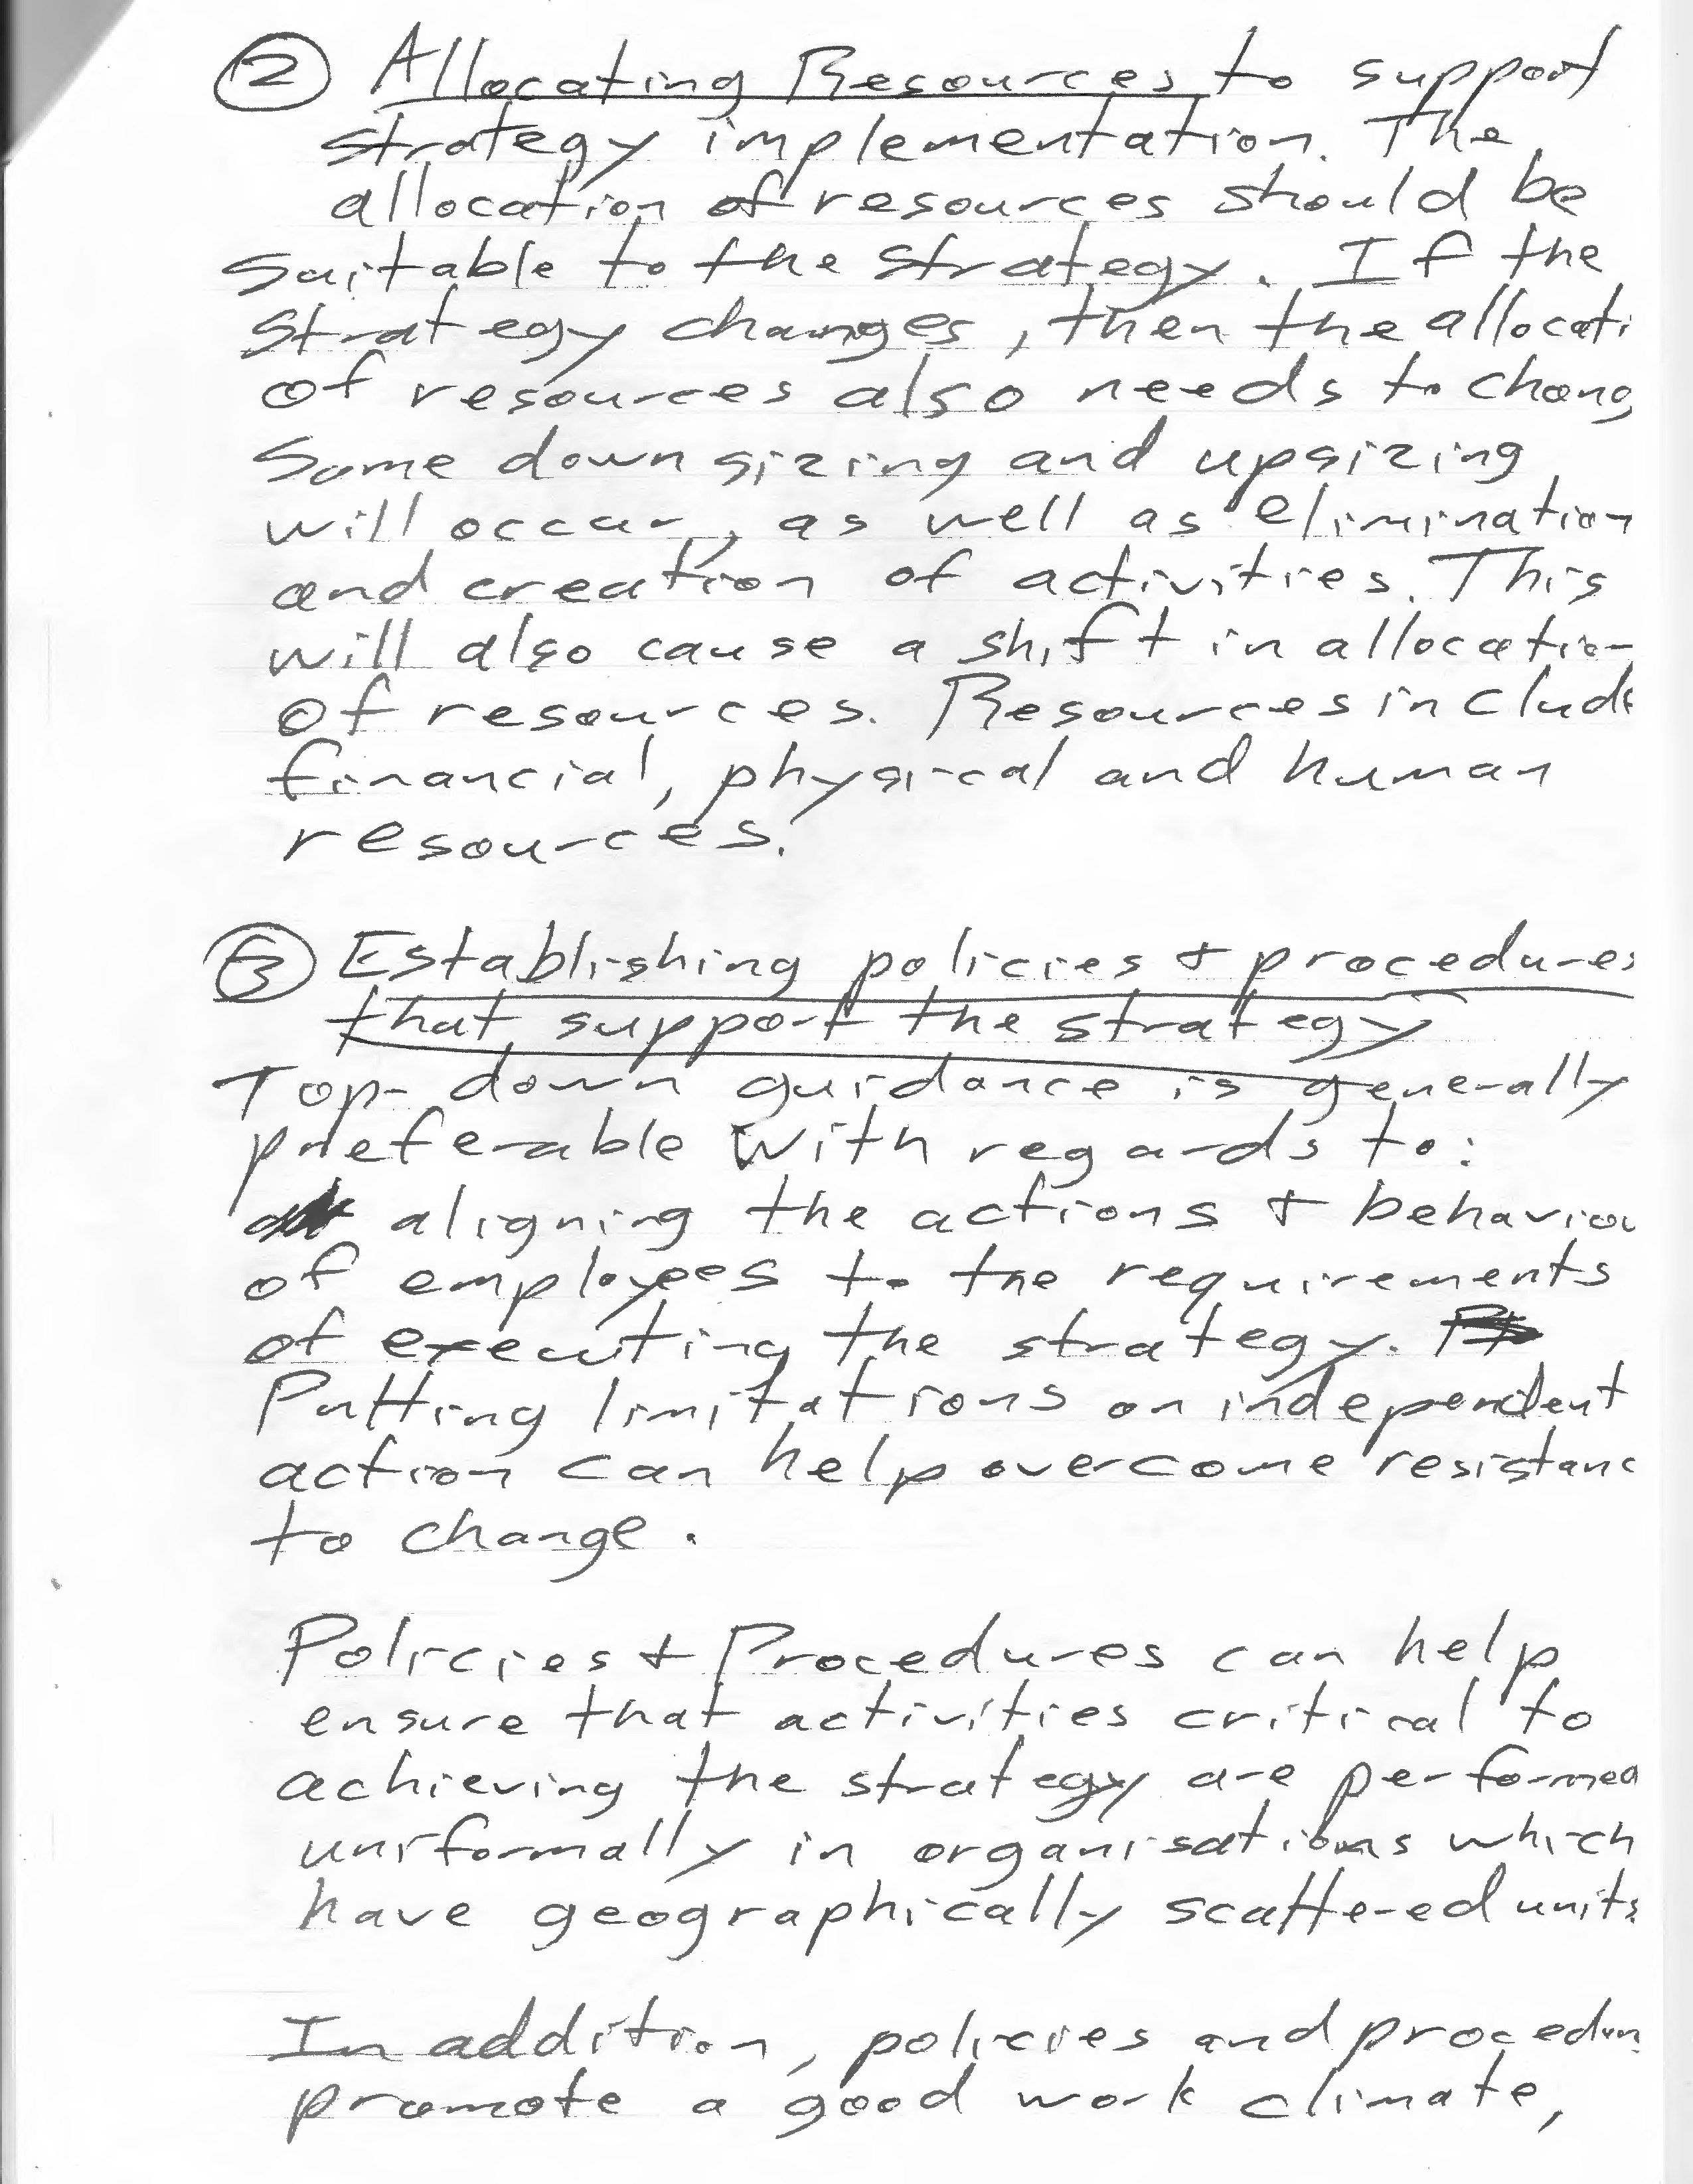 ② Allocating Resources to support
strategy implementation. The
allocation of resources should be
suitable to the strategy. If the
strategy changes, then the allocati
of resources also needs to chang
Some down sizing and upsizing
will occur, as well as elimination
and creation of activities. This
will also cause a shift in allocation
of resources. Resources include
financial, physical and human
resources.
③ Establishing policies + procedures
that support the strategy
Top-down guidance is generally
preferable with regards to:
aligning the actions + behaviou
of employees to the requirements
of executing the strategy.
Putting limitations on independent
action can help overcome resistanc
to change.
Policies + Procedures can help
ensure that activities critical to
achieving the strategy are performed
uniformally in organisations which
have geographically scattered units
In addition, policies and procedur
promote a good work climate,